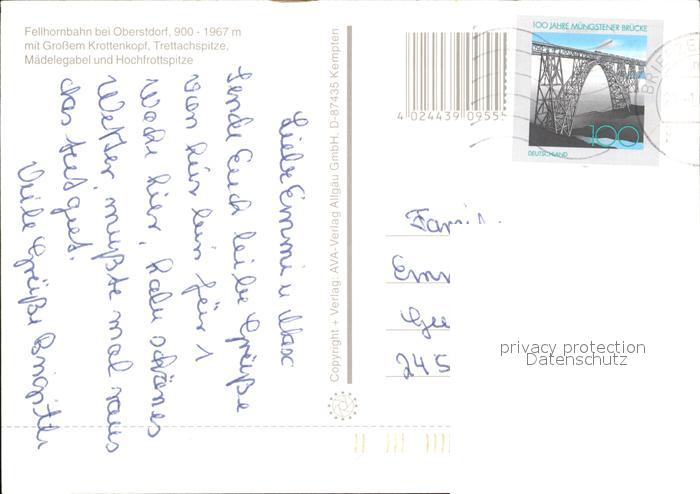 Fellhornbahn bei Oberstdorf, 900 - 1967 m
mit Großem Krottenkopf, Trettachspitze,
Mädelegabel und Hochfrottspitze
Liebe Emmi u Max
sende Euch liebe Grüße
von hier bin für 1
Woche hier, habe schönes
Wetter, mußte mal raus
das tut gut.
Viele Grüße Brigitte
Copyright + Verlag: AVA-Verlag Allgäu GmbH, D-87435 Kempten
4 024439 09555
100 JAHRE MÜNGSTENER BRÜCKE
100
DEUTSCHLAND
BRIEFZE
Fami
Em
Ge
245
privacy protection
Datenschutz